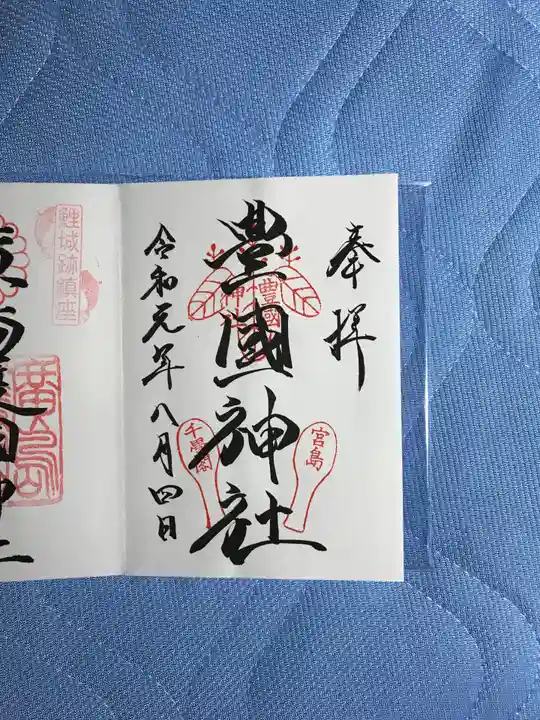 奉拝
豊國神社
豊國
神
宮島
千畳閣
令和元年八月四日
鯉城跡鎮座
廣島